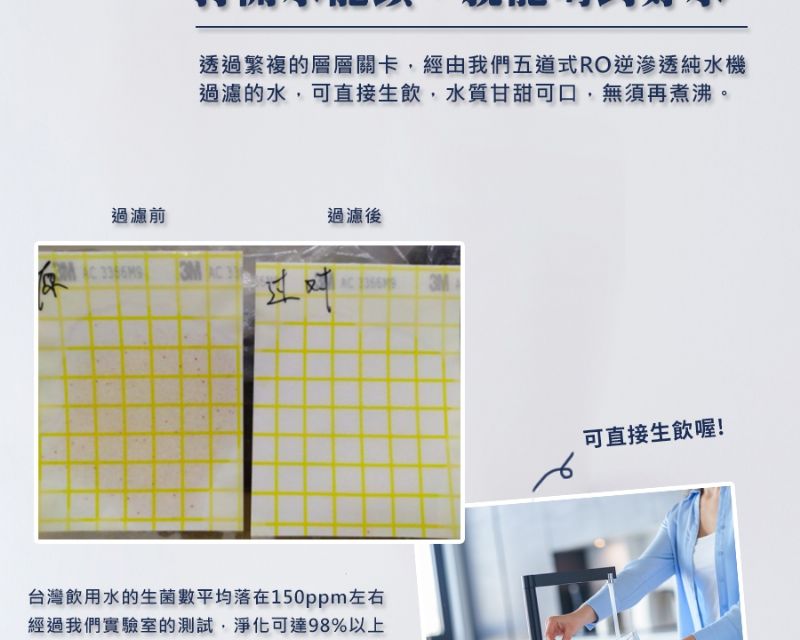 透過繁複的層層關卡，經由我們五道式RO逆滲透純水機
過濾的水，可直接生飲，水質甘甜可口，無須再煮沸。
過濾前
過濾後
可直接生飲喔!
台灣飲用水的生菌數平均落在150ppm左右
經過我們實驗室的測試，淨化可達98%以上